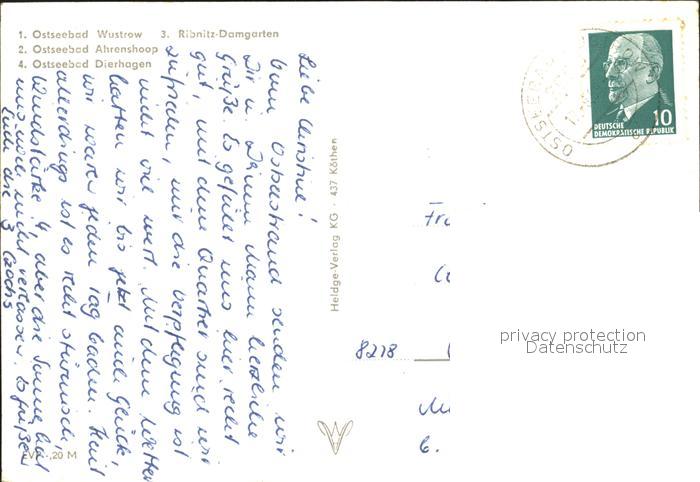 1. Ostseebad Wustrow 3. Ribnitz-Damgarten
2. Ostseebad Ahrenshoop
4. Ostseebad Dierhagen
Liebe Christine!
Vom Ostseestrand senden wir
Dir u. Deinem Mann herzliche
Grüße. Es gefällt uns hier recht
gut, mit dem Quartier sind wir
zufrieden, nur die Verpflegung ist
nicht viel wert. Mit dem Wetter
hatten wir bis jetzt auch Glück,
wir waren jeden Tag baden. Heut
allerdings ist es recht stürmisch,
Windstärke 4 aber die Sonne hat
uns noch nicht verlassen. Es grüßen
Euch die 3
Heldge-Verlag KG · 437 Köthen
EVP -,20 M
OSTSEEBAD
DEUTSCHE
DEMOKRATISCHE REPUBLIK
10
8218
privacy protection
Datenschutz
6.